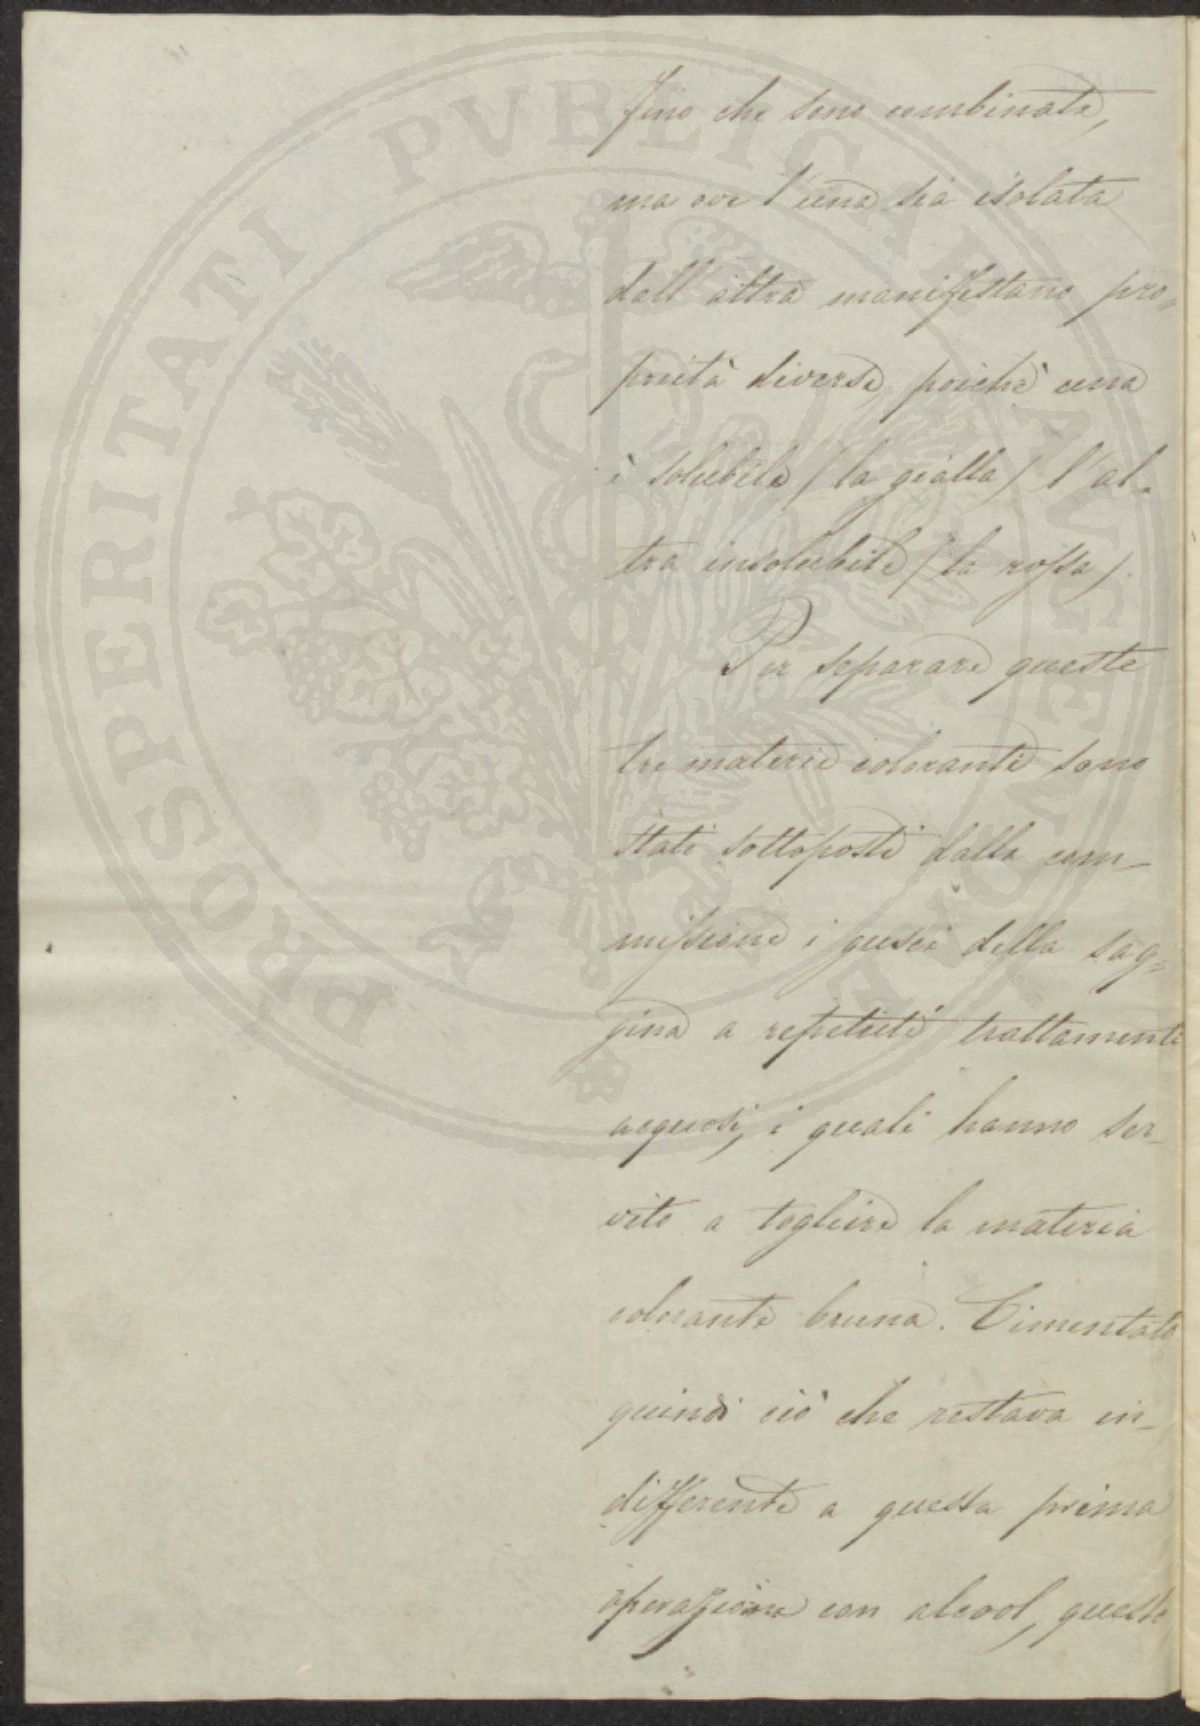 fino che sono combinate,
ma ove l'una sia isolata
dall'altra manifestano pro=
prietà diverse, poichè una
è solubile (la gialla) l'al-
tra insolubile (la rossa).
Per separare queste
tre materie coloranti sono
stati sottoposti dalla com-
missione i gusci della sag=
gina a repetuti trattamenti
acquosi, i quali hanno ser-
vito a togliere la materia
colorante bruna. Cimentato
quindi ciò che restava in-
differente a questa prima
operazione con alcool, questo
PROSPERITATI PVBLICAE AVGENDAE